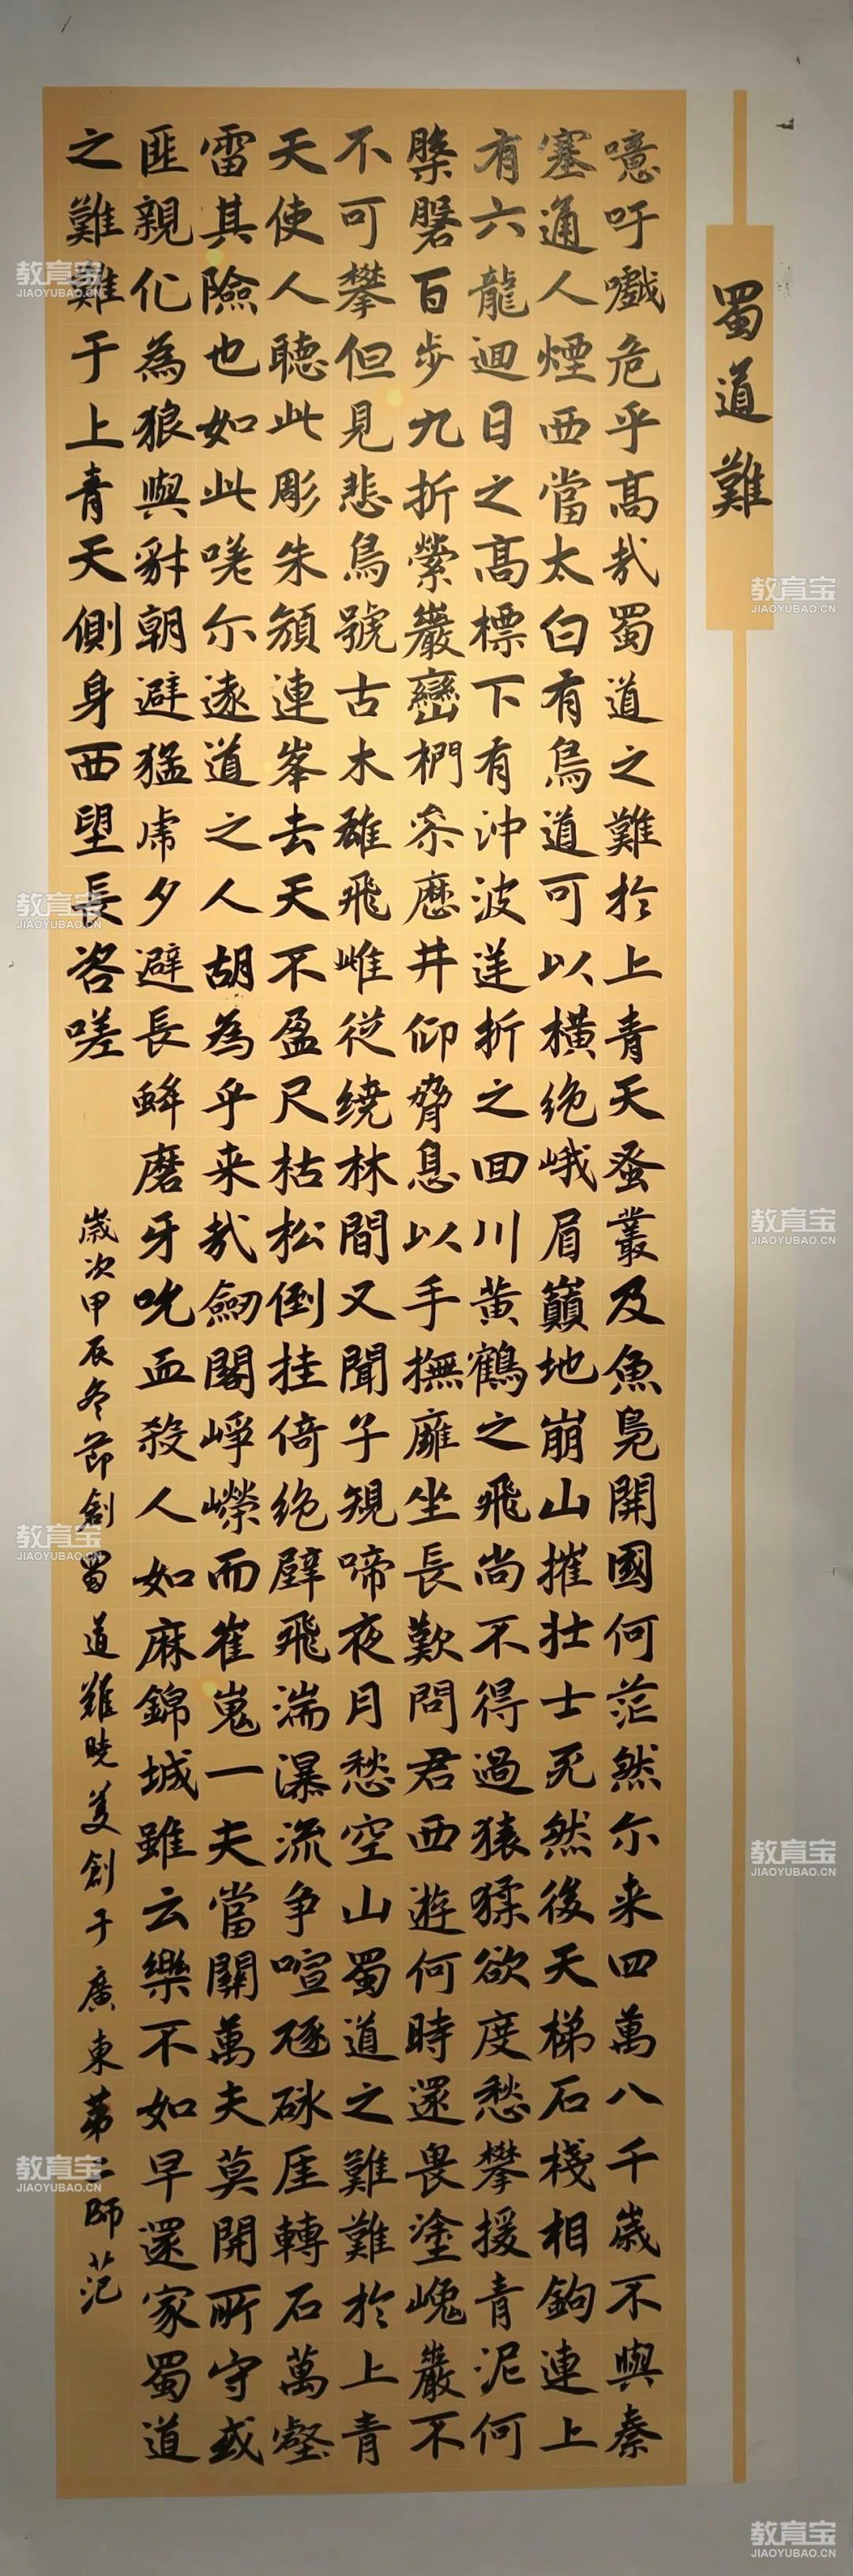 蜀道難
噫吁嚱危乎高哉蜀道之難於上青天蚕叢及魚鳧開國何茫然尔来四萬八千歲不與秦
塞通人煙西當太白有鳥道可以橫絶峨眉巔地崩山摧壮士死然後天梯石棧相鉤連上
有六龍迴日之高標下有沖波逆折之回川黄鶴之飛尚不得過猿猱欲度愁攀援青泥何
槃磐百步九折縈巖巒捫參歷井仰脅息以手撫膺坐長歎問君西遊何時還畏塗巉巖不
不可攀但見悲鳥號古木雄飛雌從繞林間又聞子規啼夜月愁空山蜀道之難難於上青
天使人聽此彫朱顏連峯去天不盈尺枯松倒挂倚絶壁飛湍瀑流争喧豗砯厓轉石萬壑
雷其險也如此嗟尔遠道之人胡為乎来哉劍閣崢嶸而崔嵬一夫當關萬夫莫開所守或
匪親化為狼與豺朝避猛虎夕避長蛇磨牙吮血殺人如麻錦城雖云樂不如早還家蜀道
之難難于上青天側身西望長咨嗟
歲次甲辰冬節創蜀道難曉菱創于廣東第二師范
教育宝
JIAOYUBAO.CN
教育宝
JIAOYUBAO.CN
教育宝
JIAOYUBAO.CN
教育宝
JIAOYUBAO.CN
教育宝
JIAOYUBAO.CN
教育宝
JIAOYUBAO.CN
教育宝
JIAOYUBAO.CN
教育宝
JIAOYUBAO.CN